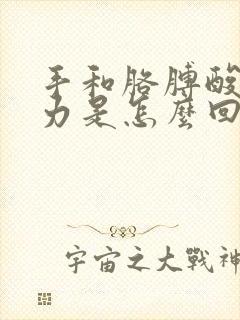 手和胳膊酸
力是怎麼回
宇宙之大戰神